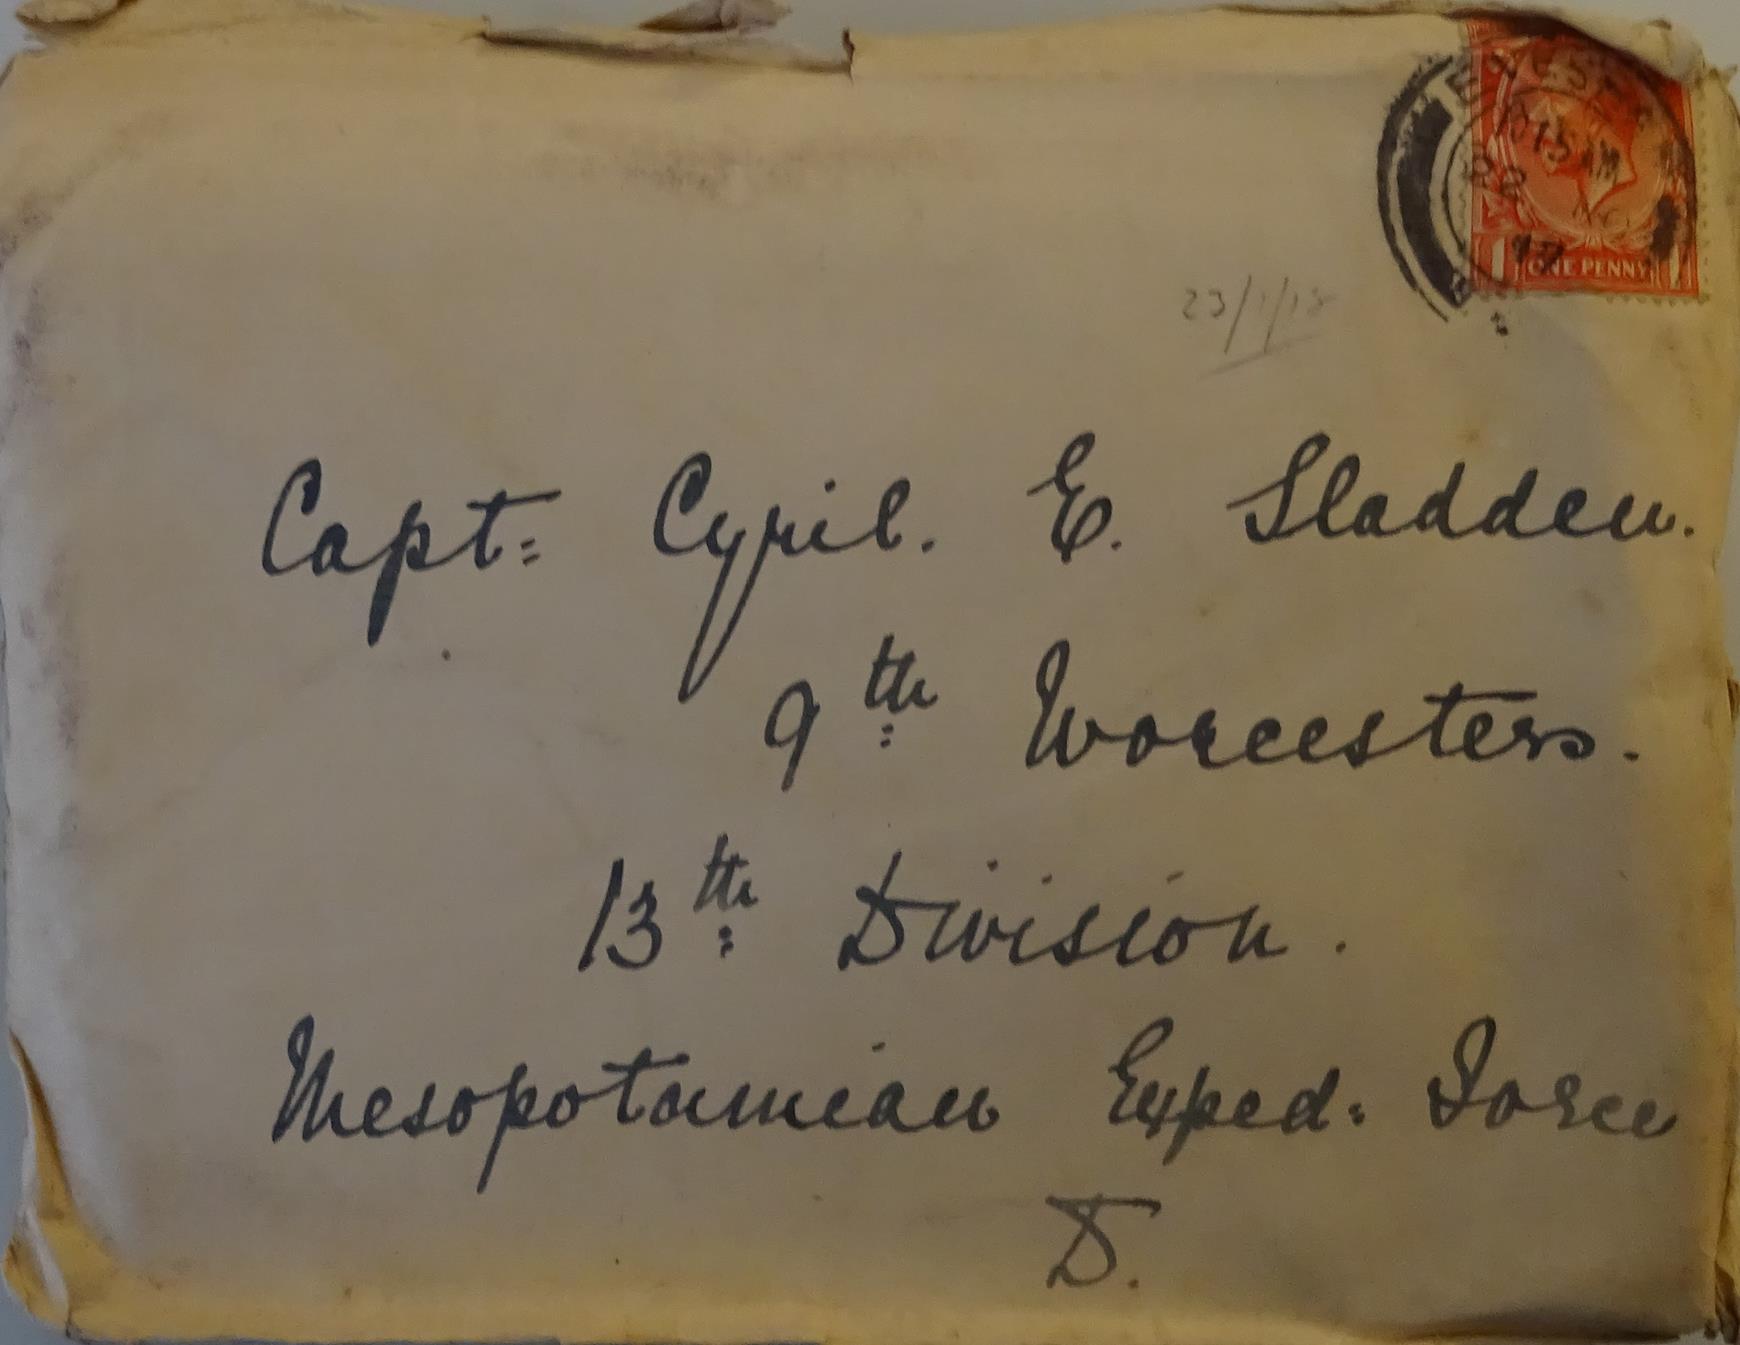 EVESHAM
10 15 AM
22 NO
17
1 ONE PENNY 1
23/1/18
Capt: Cyril. E. Sladden.
9th Worcesters.
13th Division.
Mesopotamian Exped: Force
D.